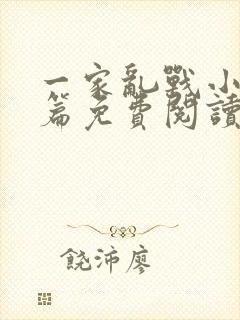 一家亂戰小
篇免費閱讀
饒沛廖